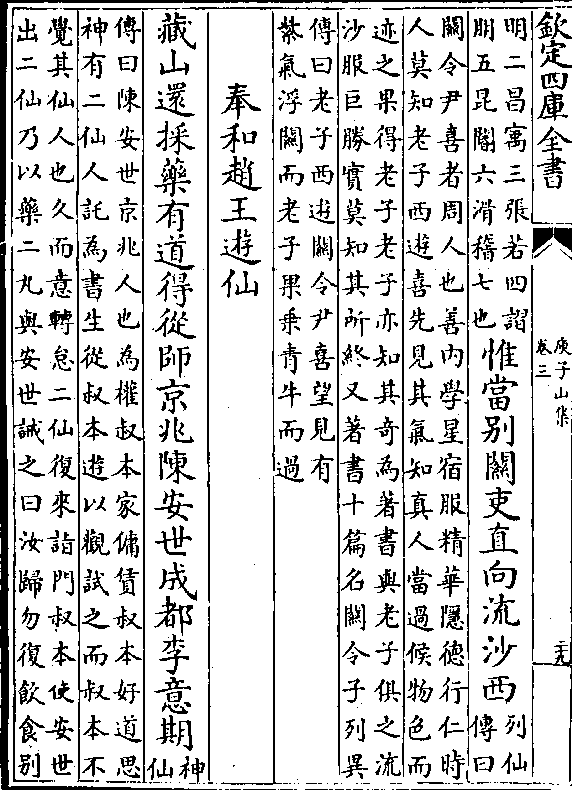 欽定四庫全書
庾子山集
卷三
二十九
明二昌寓三張若四謵
朋五昆閽六滑稽七也
惟當别關吏直向流沙西
列仙
傳曰
關令尹喜者周人也善内學星宿服精華隱德行仁時
人莫知老子西遊喜先見其氣知真人當過候物色而
迹之果得老子老子亦知其奇為著書與老子俱之流
沙服巨勝實莫知其所終又著書十篇名關令子列異
傳曰老子西遊關令尹喜望見有
紫氣浮關而老子果乗青牛而過
奉和趙王遊仙
藏山還採藥有道得從師京兆陳安世成都李意期
神
仙
傳曰陳安世京兆人也為權叔本家傭賃叔本好道思
神有二仙人託為書生從叔本遊以觀試之而叔本不
覺其仙人也久而意轉怠二仙復來詣門叔本使安世
出二仙乃以藥二丸與安世誡之曰汝歸勿復飲食别